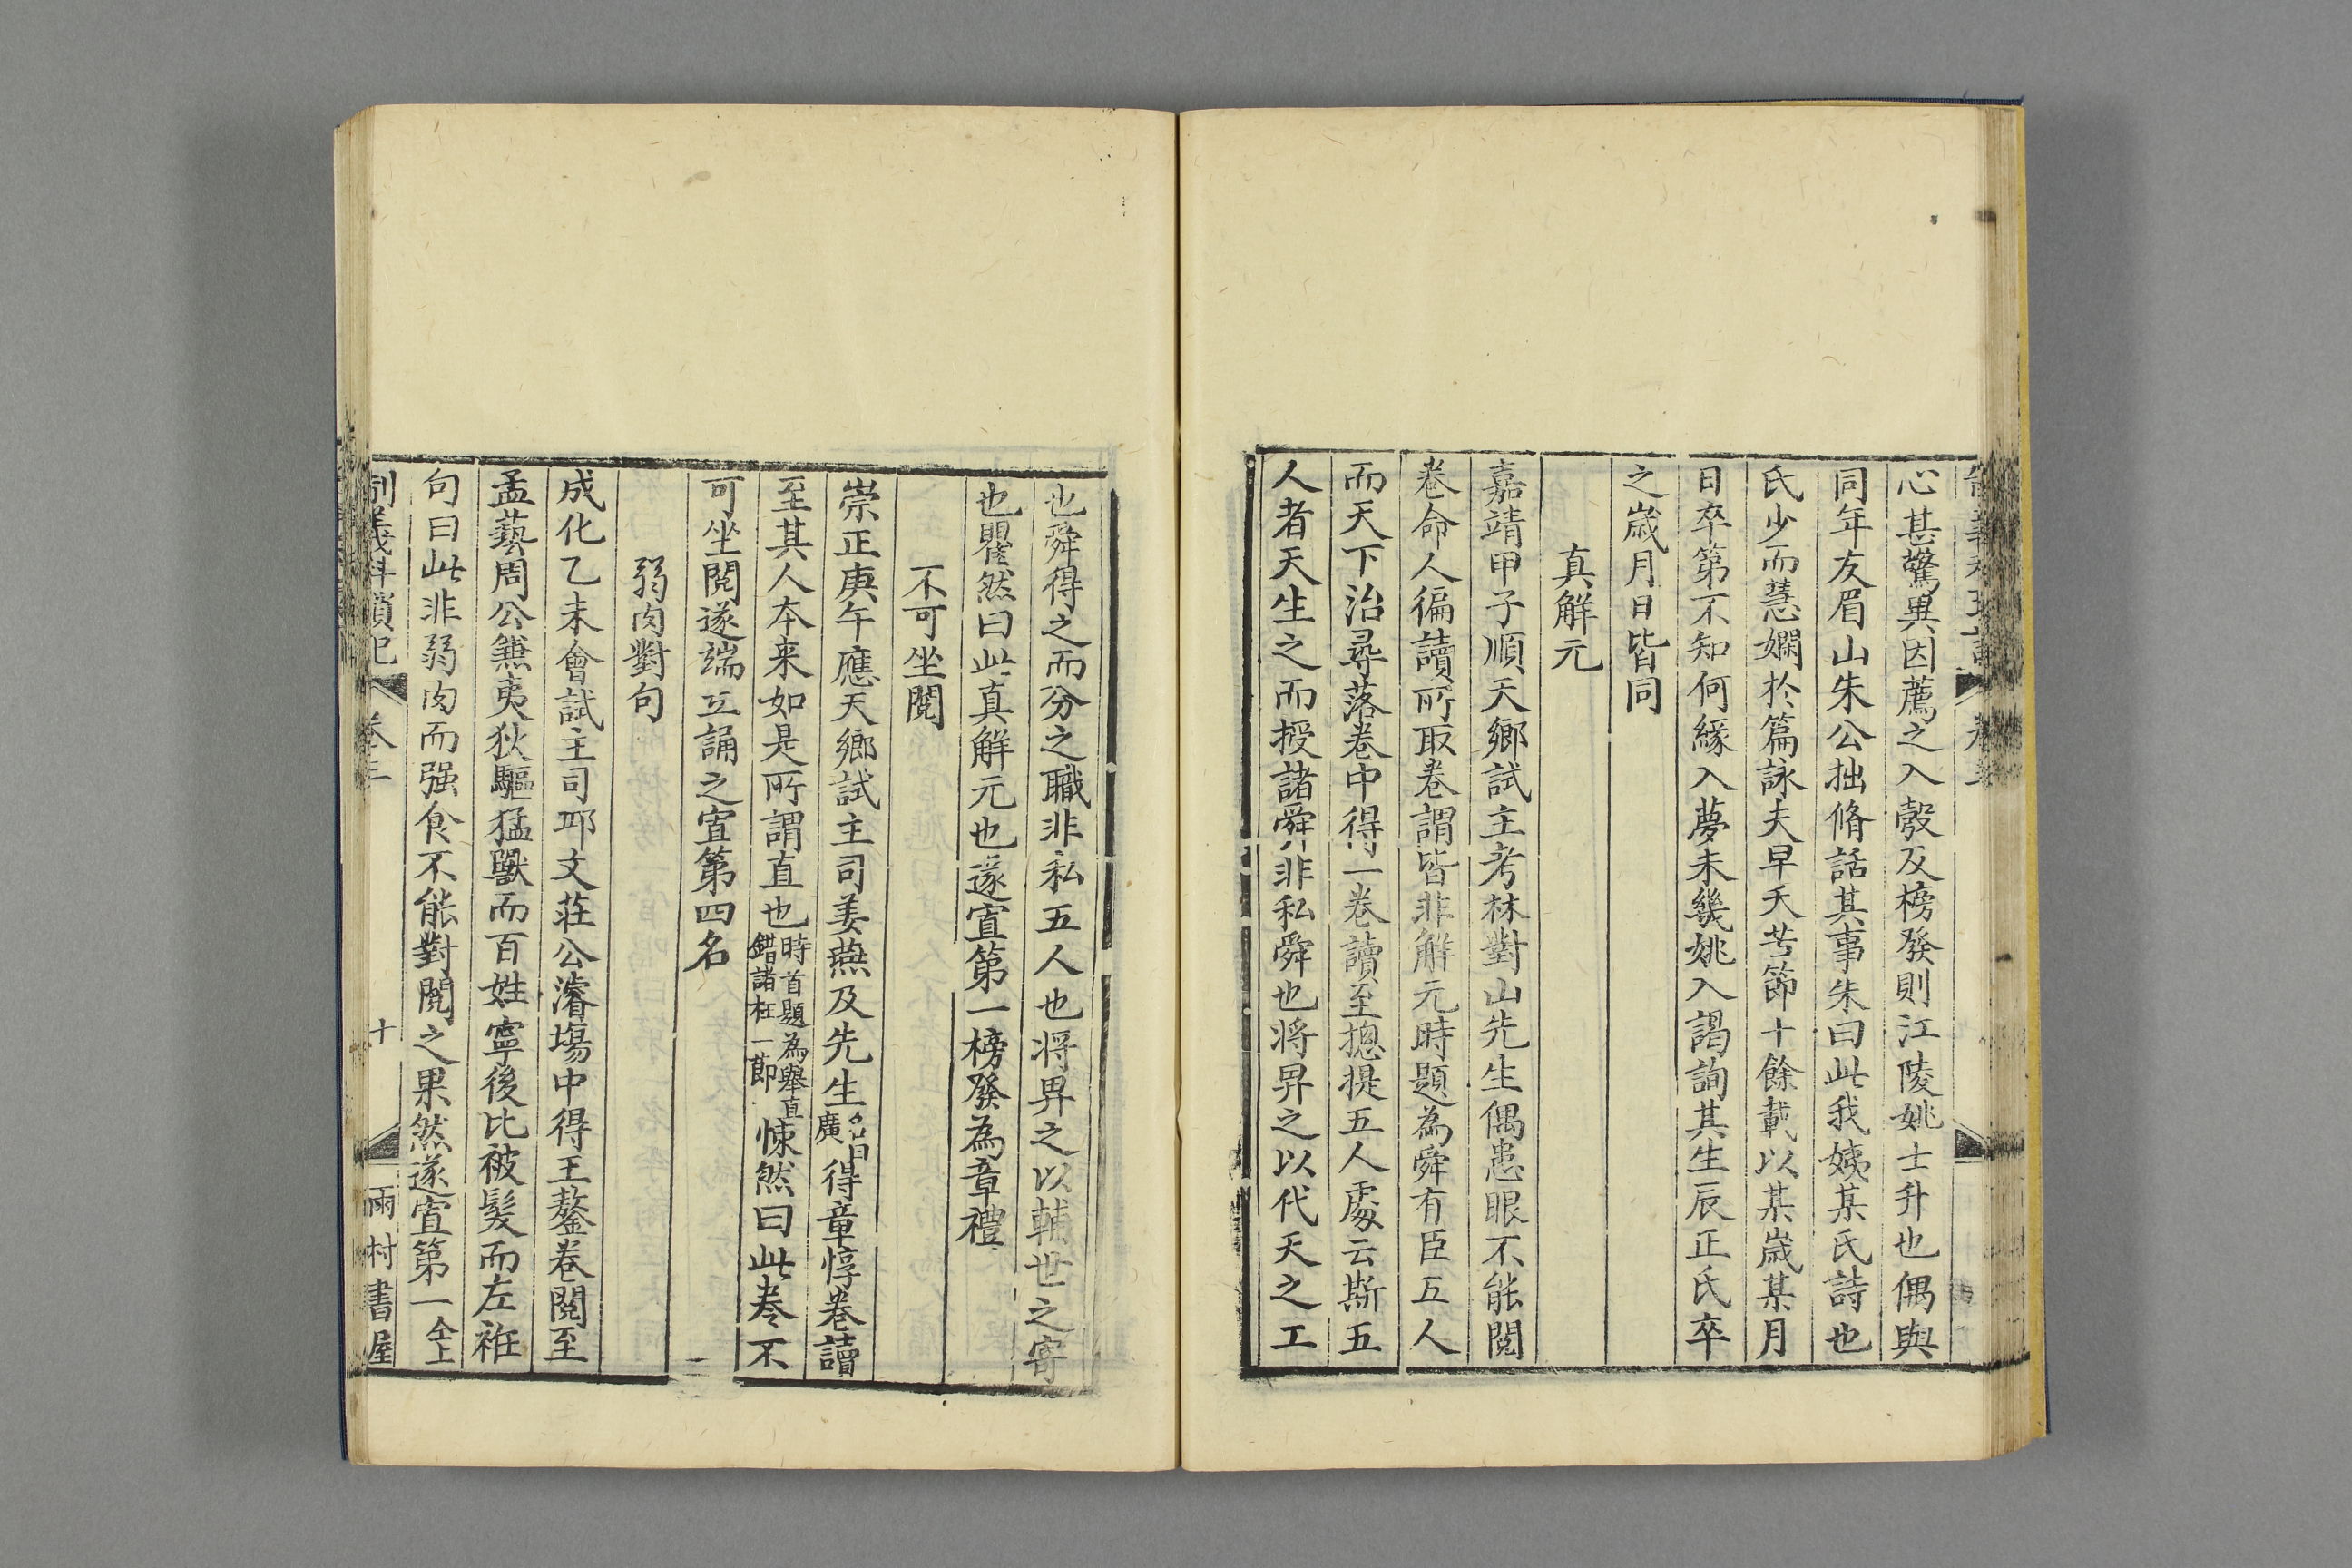 心甚驚異因薦之入彀及榜發則江陵姚士升也偶與
同年友眉山朱公拙脩話其事朱曰此我姨某氏詩也
氏少而慧嫻於篇詠夫早夭苦節十餘載以某歲某月
日卒第不知何緣入夢未幾姚入謁詢其生辰正氏卒
之歲月日皆同
真解元
嘉靖甲子順天鄉試主考林對山先生偶患眼不能閱
卷命人徧讀所取卷謂皆非解元時題為舜有臣五人
而天下治尋落卷中得一卷讀至摠提五人處云斯五
人者天生之而授諸舜非私舜也將畀之以代天之工
也舜得之而分之職非私五人也將畀之以輔世之寄
也瞿然曰此真解元也遂寘第一榜發為章禮
不可坐閱
崇正庚午應天鄉試主司姜燕及先生名曰廣得章惇卷讀
至其人本来如是所謂直也時首題為舉直錯諸枉一節悚然曰此卷不
可坐閱遂端立誦之寘第四名
弱肉對句
成化乙未會試主司邱文莊公濬場中得王鏊卷閱至
孟藝周公兼夷狄驅猛獸而百姓寧後比被髮而左袵
句曰此非弱肉而强食不能對閱之果然遂寘第一仝上
制義科瑣記 卷三 十 兩村書屋